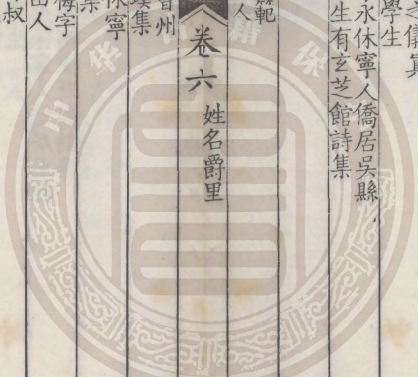 學生
永休寧人僑居吳縣
生有玄芝館詩集
範
人
卷六 姓名爵里
州
集
休寧
字
人
叔